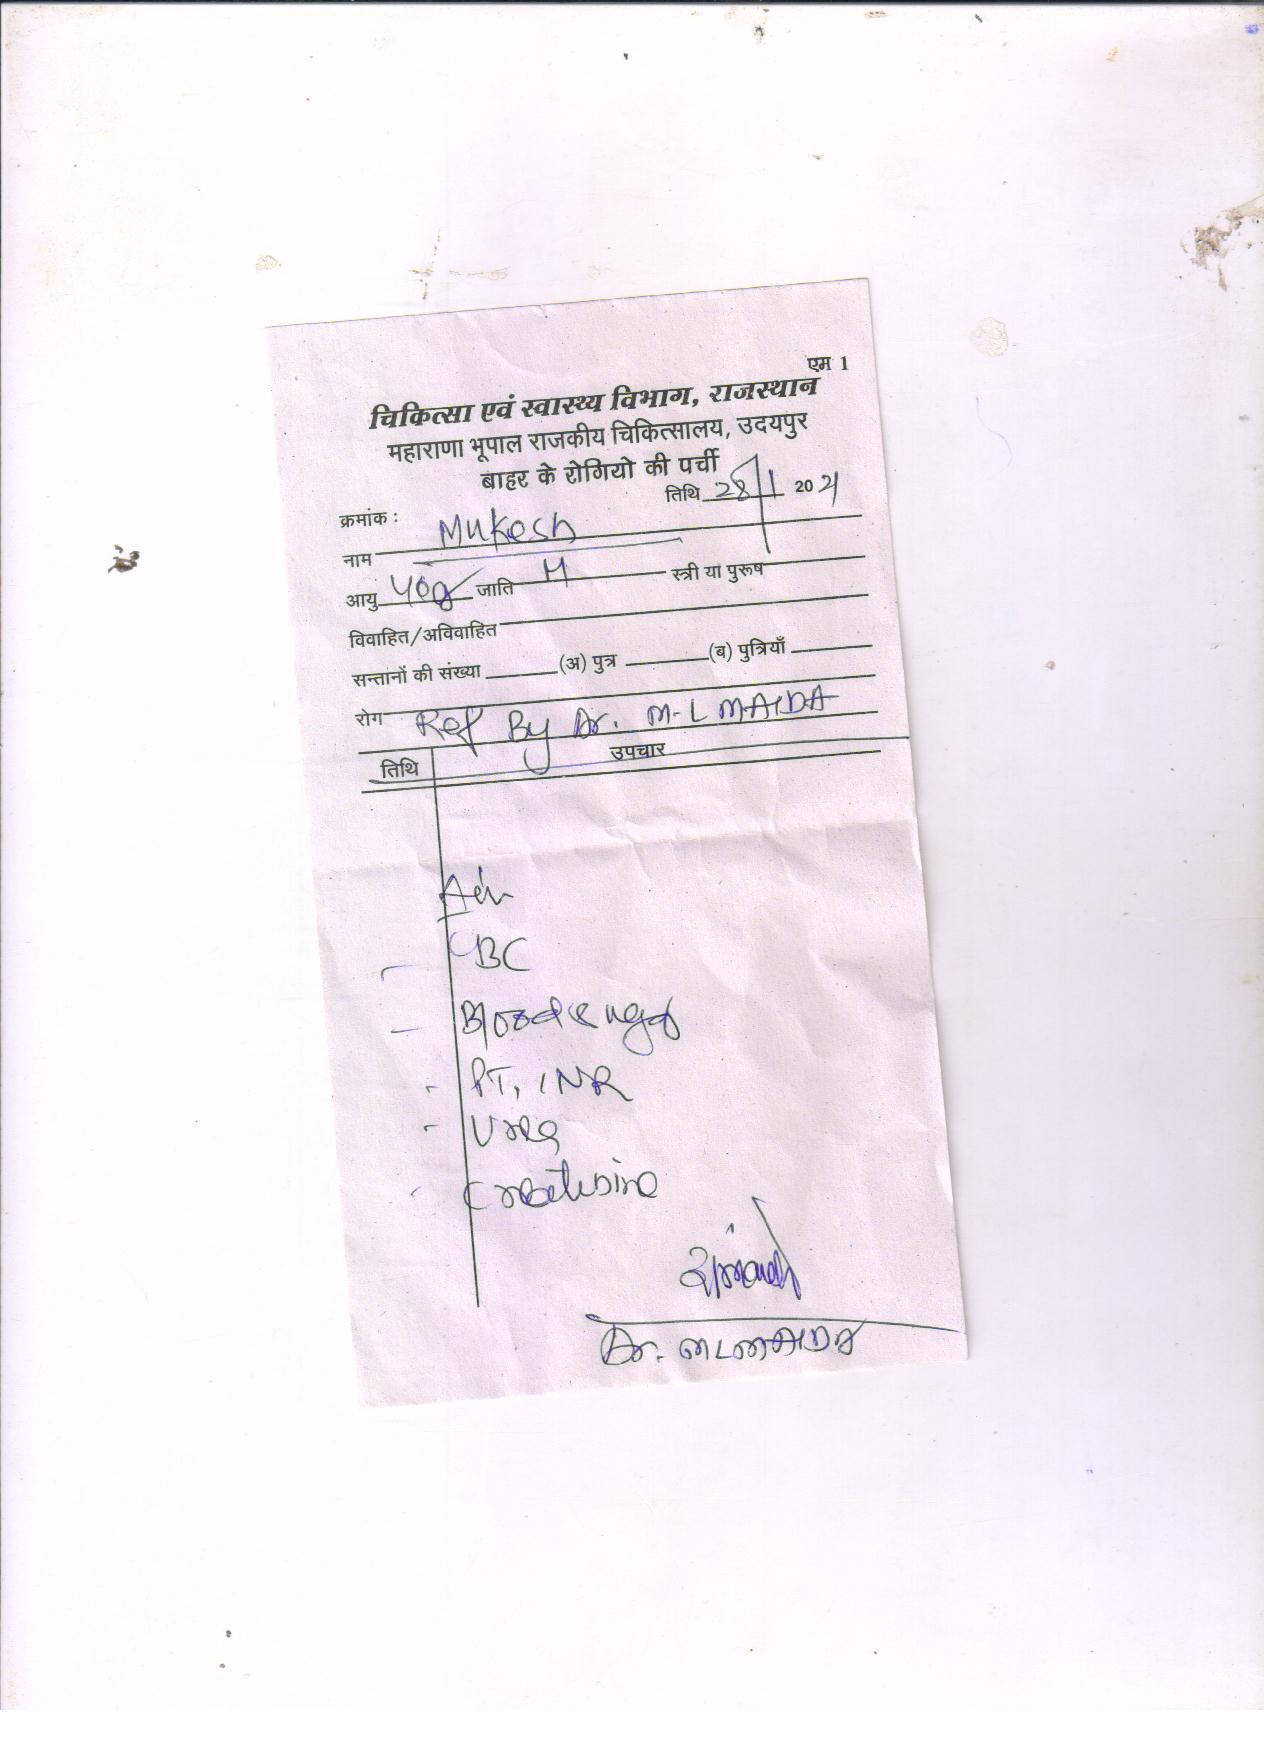 एम 1
चिकित्सा एवं स्वास्थ्य विभाग, राजस्थान
महाराणा भूपाल राजकीय चिकित्सालय, उदयपुर
बाहर के रोगियो की पर्ची
तिथि 28/1 2021
क्रमांक :
नाम Mukesh
आयु 40y जाति M स्त्री या पुरूष
विवाहित/अविवाहित
सन्तानों की संख्या (अ) पुत्र (ब) पुत्रियाँ
रोग Ref By Dr. M.L MAIDA
तिथि उपचार
Adv
- CBC
- Blood
- PT, INR
- Urea
- Creatinine
Dr. MLMAIDA